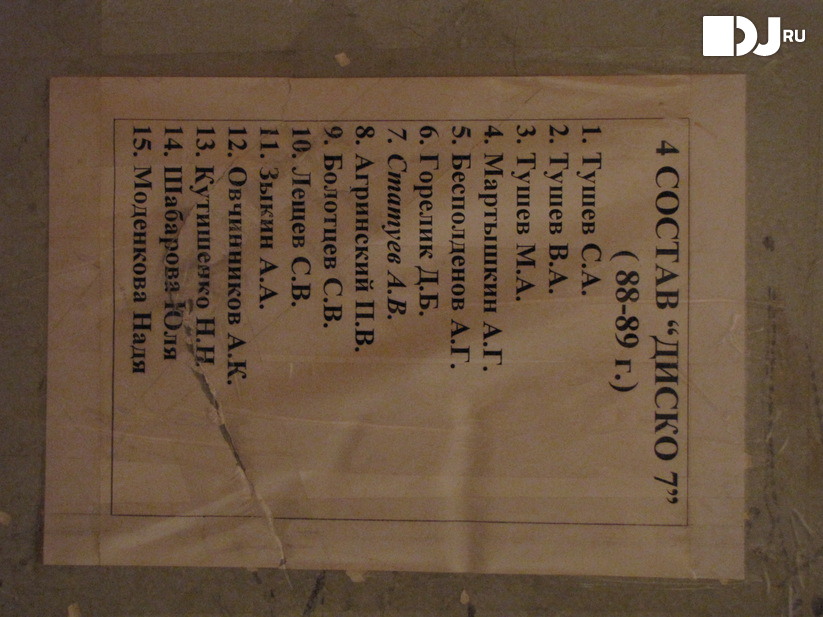 4 СОСТАВ “ДИСКО 7”
( 88-89 г.)
1. Тушев С.А.
2. Тушев В.А.
3. Тушев М.А.
4. Мартышкин А.Г.
5. Бесполденов А.Г.
6. Горелик Д.Б.
7. Статуев А.В.
8. Агринский П.В.
9. Болотцев С.В.
10. Лещев С.В.
11. Зыкин А.А.
12. Овчинников А.К.
13. Кутишенко Н.Н.
14. Шабарова Юля
15. Моденкова Надя
DJ RU